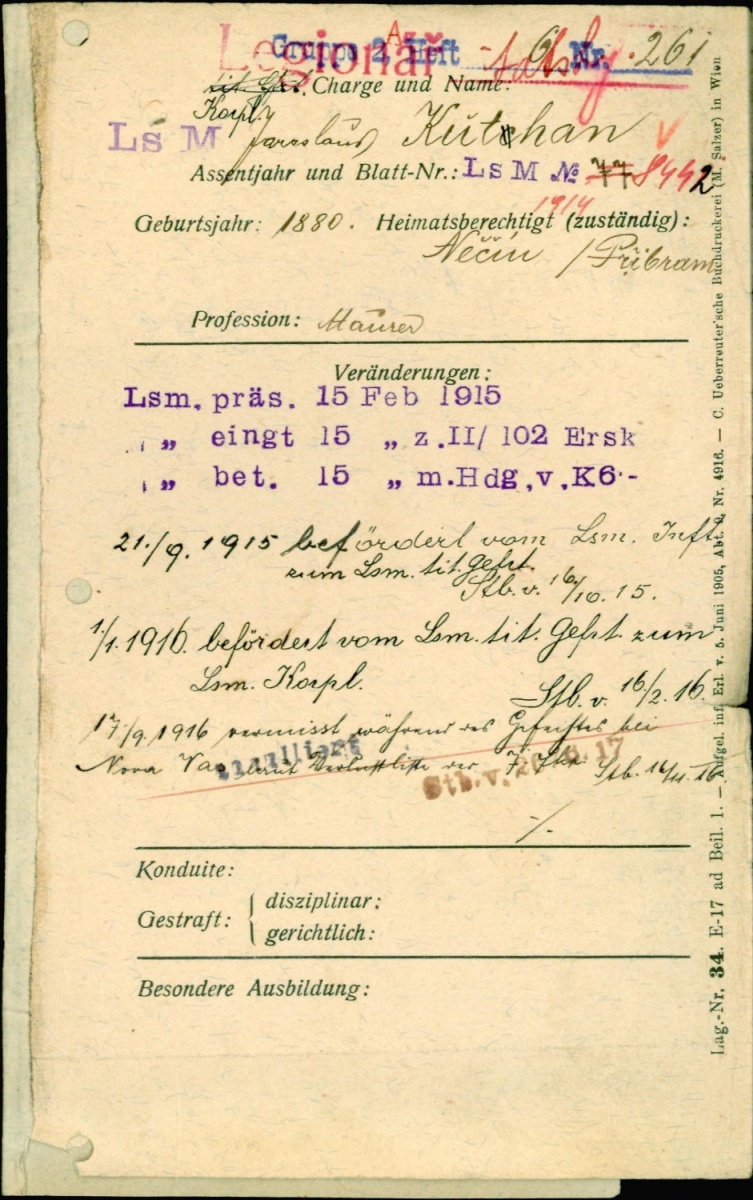 Legionář
Gruppe 2, A Heft 6 Nr. 261
tit. Gfrt. Charge und Name:
Korpl.
LsM Jaroslaus Kutschan
Assentjahr und Blatt-Nr.: LsM № 77 8442
1914
Geburtsjahr: 1880. Heimatsberechtigt (zuständig):
Něčín / Přibram
Profession: Maurer
Veränderungen:
Lsm. präs. 15 Feb 1915
„ eingt 15 „ z.II/102 Ersk
„ bet. 15 „ m.Hdg.v.K6.-
21./9. 1915 befördert vom Lsm. Inft.
zum Lsm. tit. Gefrt.
Stb. v. 16/10. 15.
1/1. 1916. befördert vom Lsm. tit. Gefrt. zum
Lsm. Korpl.
Stb. v. 16/2. 16.
17/9. 1916 vermisst während des Gefechtes bei
Nova Vas laut Verlustliste der Stb. 16/11. 16
annulliert Stb.v. 17
-/-
Konduite:
Gestraft: { disziplinar:
gerichtlich:
Besondere Ausbildung:
Lag.-Nr. 34. E-17 ad Beil. 1. — Aufgel. inf. Erl. v. 5. Juni 1905, Abt. 2, Nr. 4916. — C. Ueberreuter'sche Buchdruckerei (M. Salzer) in Wien.